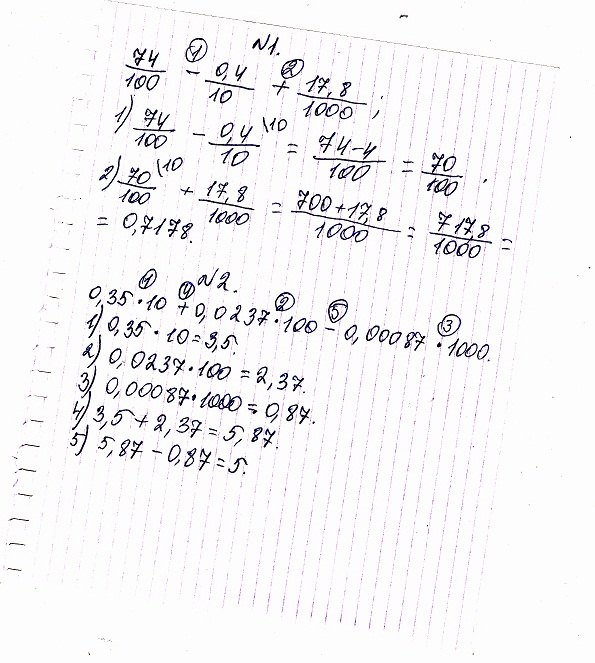 №1.
74/100 - 0,4/10 + 17,8/1000 ;
① ②
1) 74/100 - 0,4/10 \10 = 74-4/100 = 70/100 .
2) 70/100 \10 + 17,8/1000 = 700+17,8/1000 = 717,8/1000 =
= 0,7178.
№2.
① ④ ② ⑤ ③
0,35·10 + 0,0237·100 - 0,00087·1000.
1) 0,35·10=3,5.
2) 0,0237·100=2,37.
3) 0,00087·1000=0,87.
4) 3,5+2,37=5,87.
5) 5,87-0,87=5.